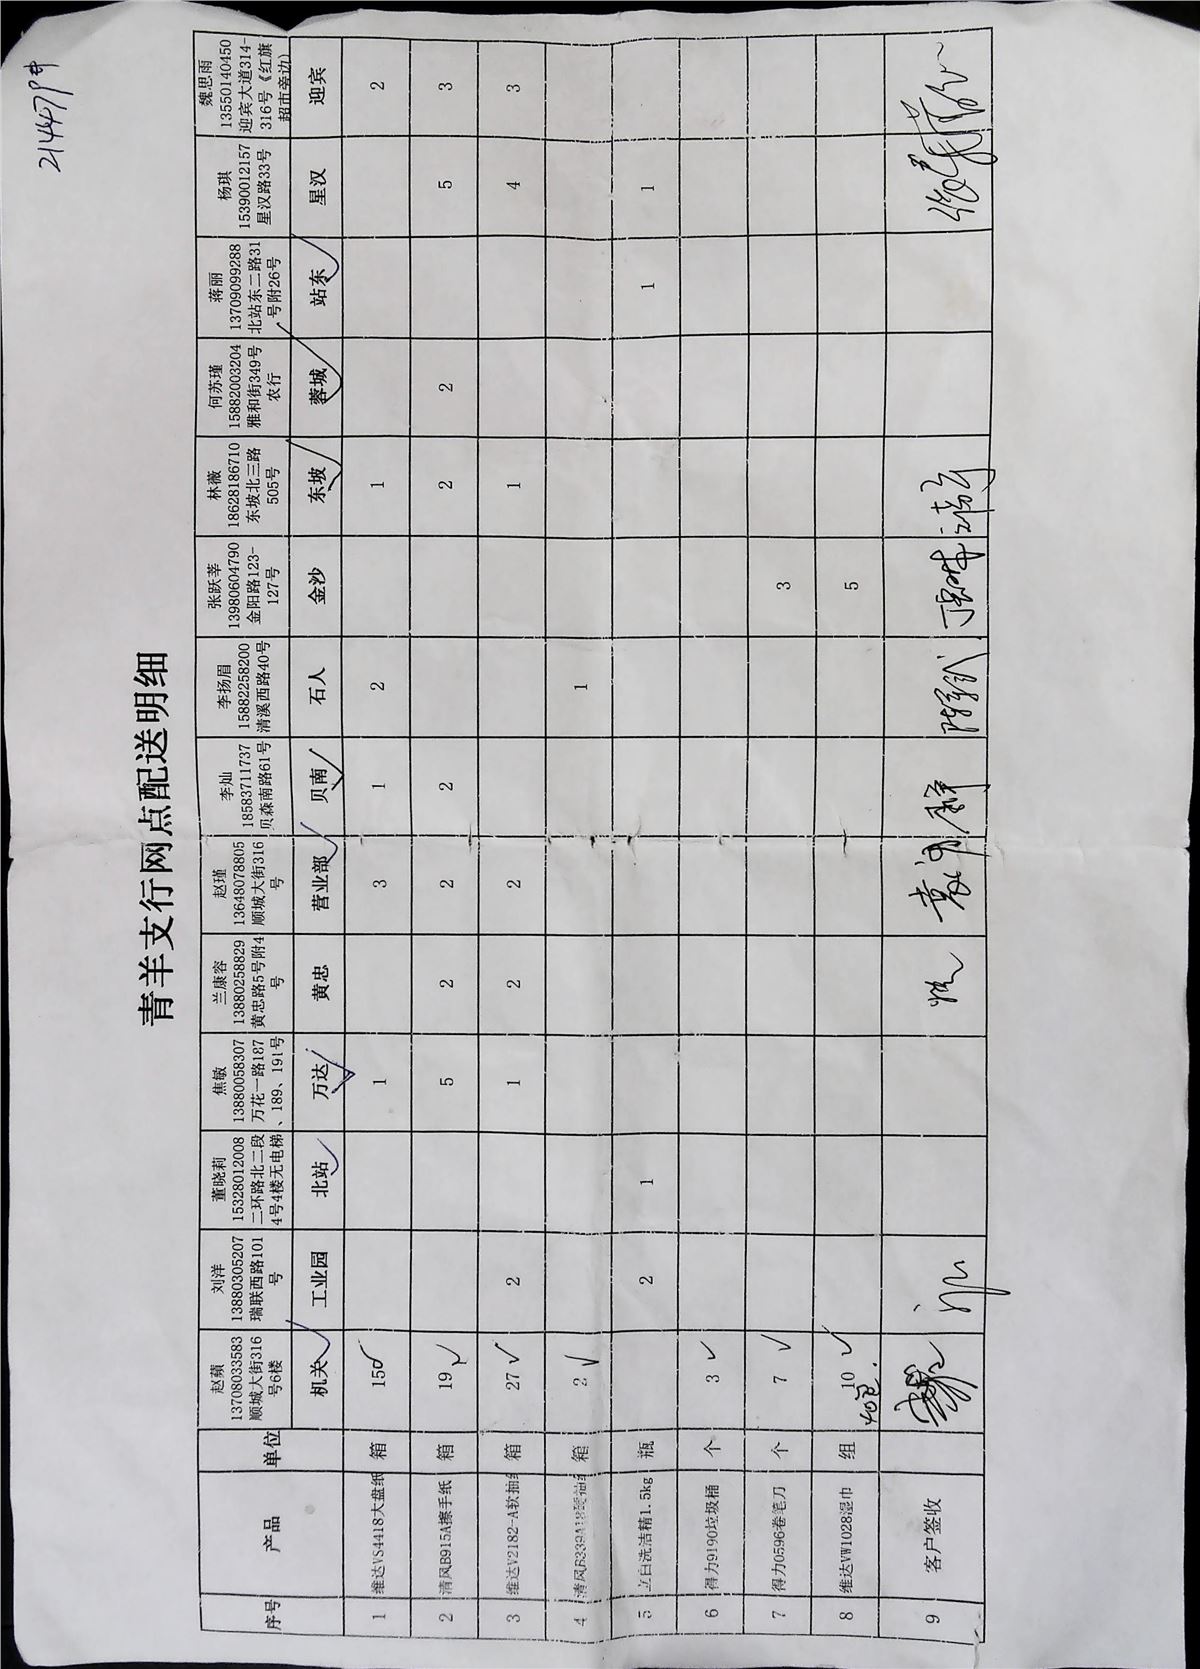 青羊支行网点配送明细
赵蘋 13708033583 顺城大街316号6楼
刘洋 13880305207 瑞联西路101号
董晓莉 15328012008 二环路北二段4号4楼无电梯
焦敏 13880058307 万花一路187、189、191号
兰康容 13880258829 黄忠路5号附4号
赵瑾 13648078805 顺城大街316号
李灿 18583711737 贝森南路61号
李扬眉 15882258200 清溪西路40号
张跃莘 13980604790 金阳路123-127号
林薇 18628186710 东坡北三路505号
何苏瑾 15882003204 雅和街349号农行
蒋丽 13709099288 北站东二路31号附26号
杨琪 15390012157 星汉路33号
魏思雨 13550140450 迎宾大道314-316号《红旗超市旁边》
序号 产品 单位 机关 工业园 北站 万达 黄忠 营业部 贝南 石人 金沙 东坡 蓉城 站东 星汉 迎宾
1 维达VS4418大盘纸 箱 150 1 3 1 2 1 2
2 清风B915A擦手纸 箱 19 5 2 2 2 2 2 5 3
3 维达V2182-A软抽 箱 27 2 1 2 2 1 4 3
4 清风 箱 2 1
5 立白洗洁精1.5kg 瓶 2 1 1 1
6 得力9190垃圾桶 个 3
7 得力0596卷笔刀 个 7 3
8 维达VW1028湿巾 组 10 5
40包
9 客户签收